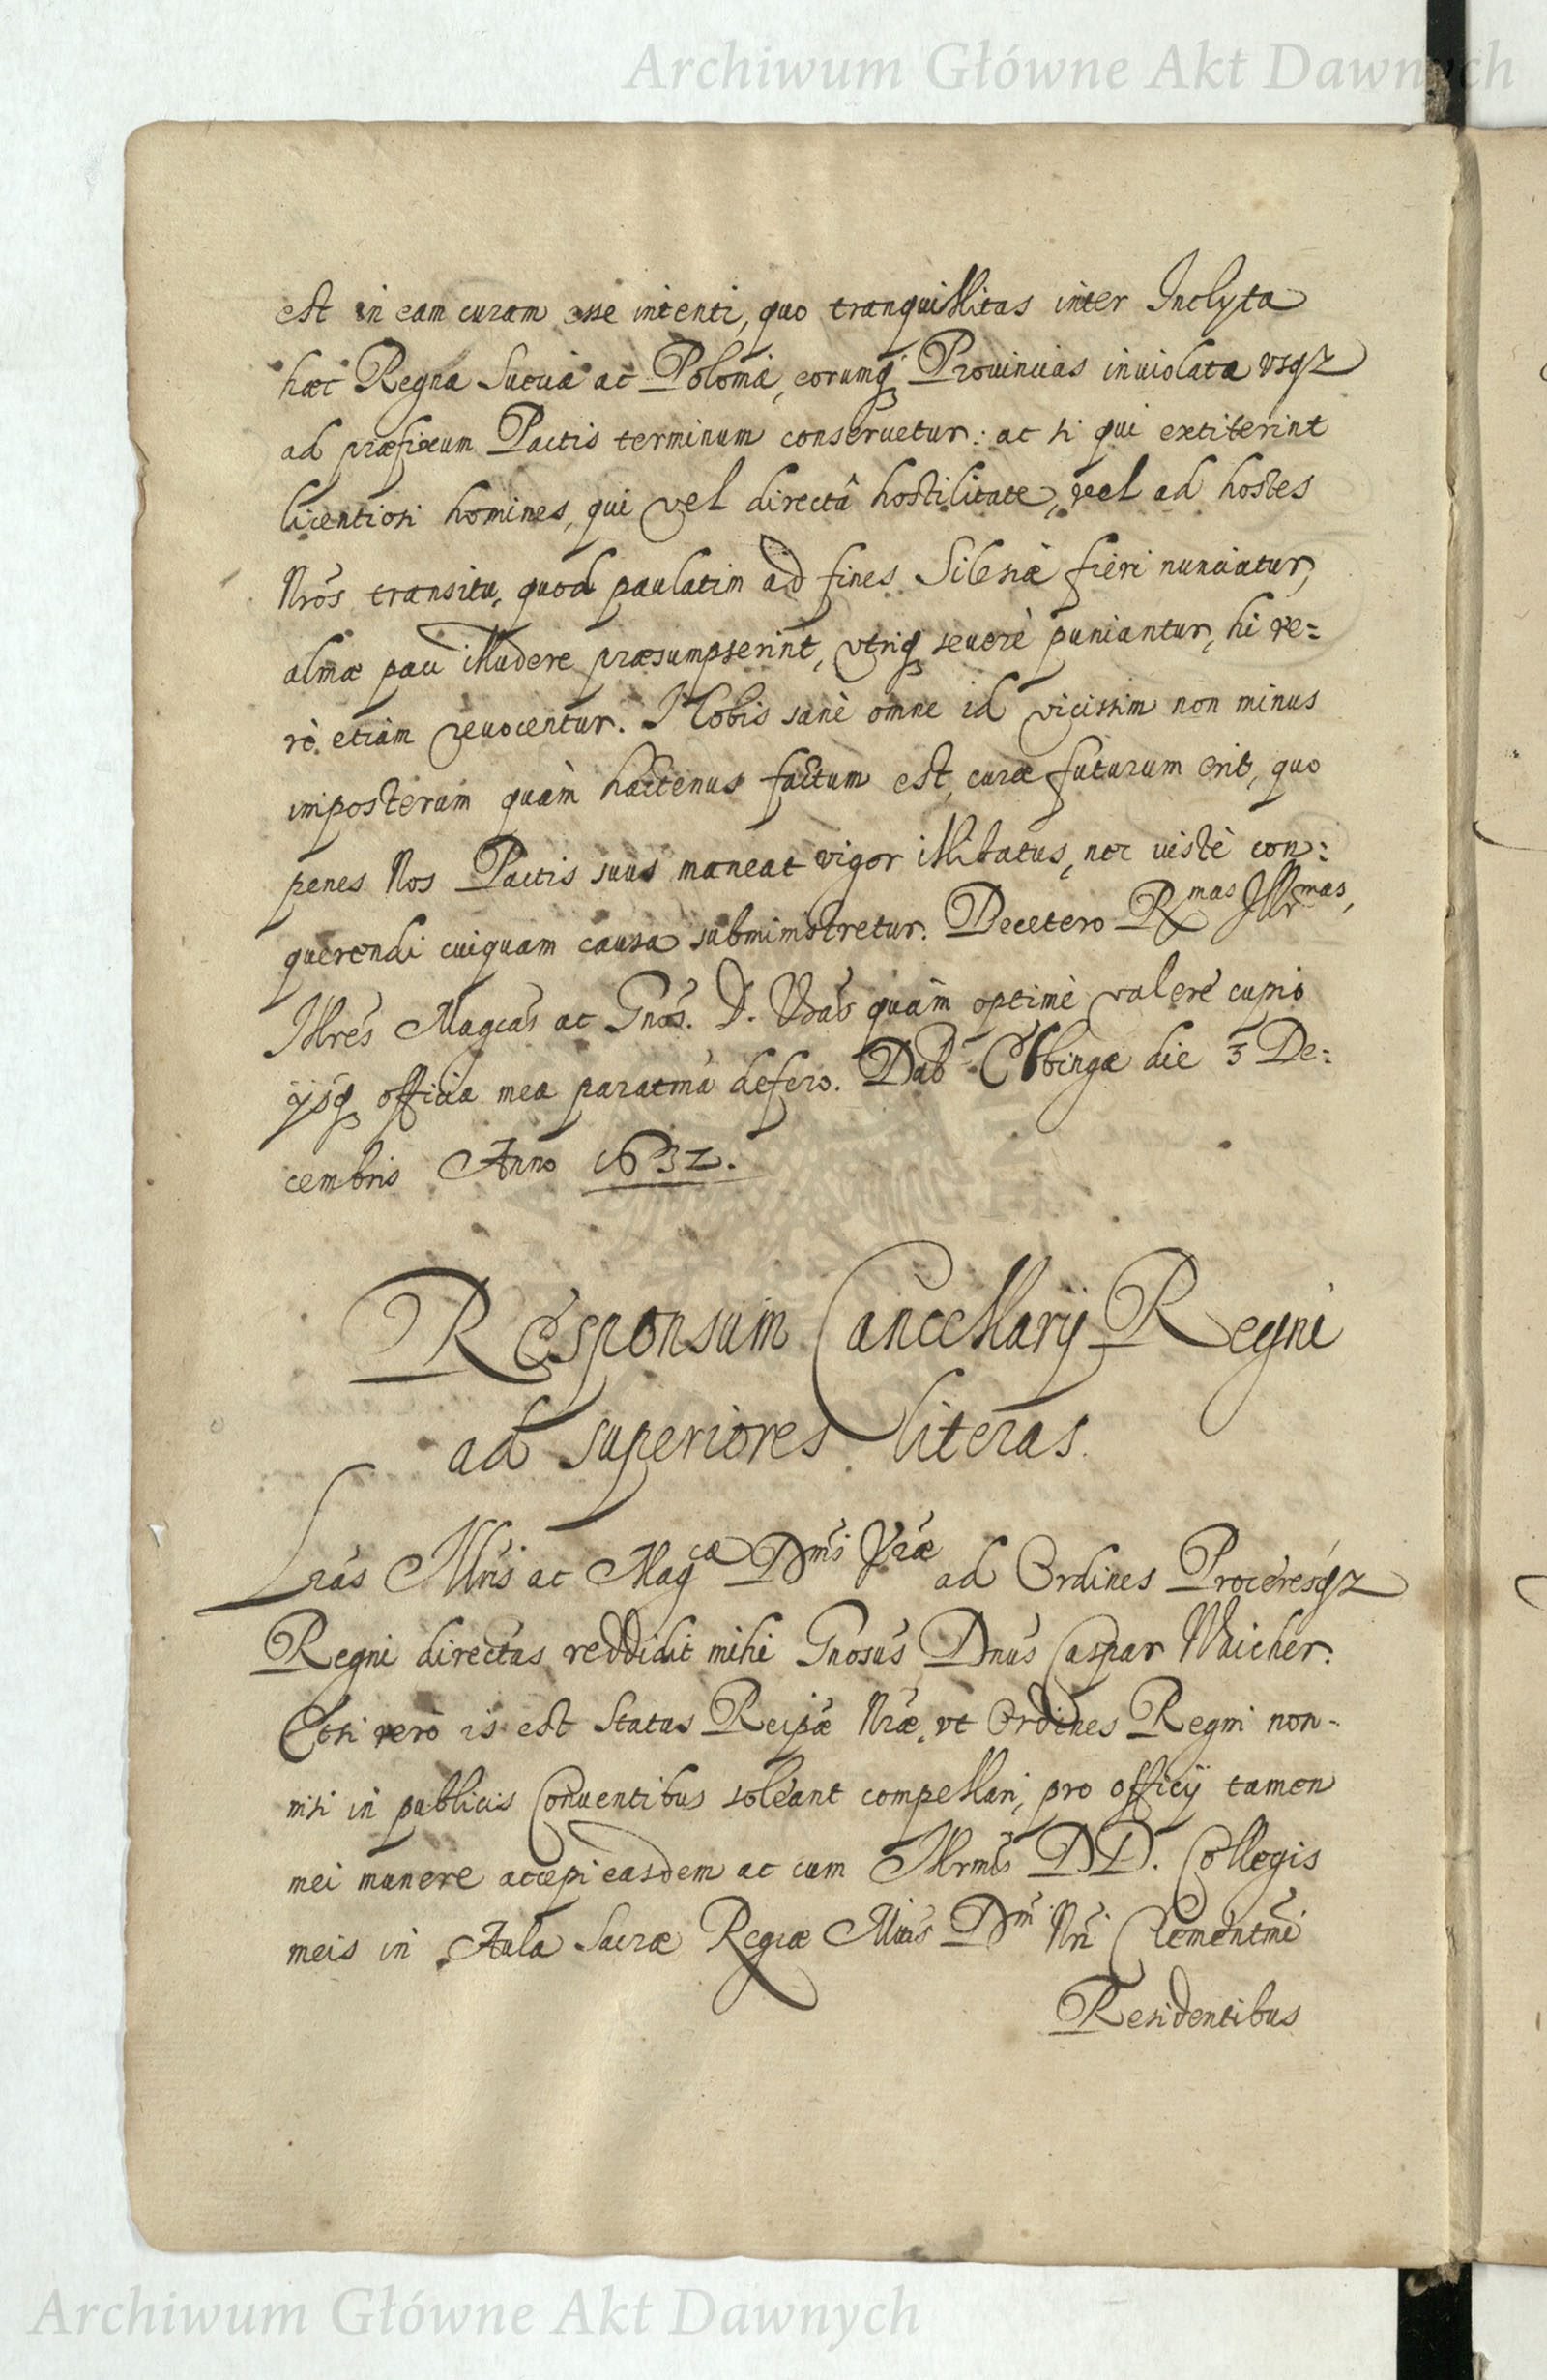 Archiwum Główne Akt Dawnych
est in eam curam esse intenti, quo tranquillitas inter Inclyta
hæc Regna Sueciæ ac Poloniæ, eorumq̃ Prouincias inuiolata vsqz
ad præfixum Pactis terminum conseruetur: ac si qui extiterint
licentiosi homines, qui vel directâ hostilitate, vel ad hostes
Nrõs transitu, quod paulatim ad fines Silesiæ fieri nunciatur,
almæ paci illudere præsumpserint, vtriq̃ seuerè puniantur, hi ve=
rò etiam reuocentur. Nobis sanè omne id vicissim non minus
imposterum quàm hactenus factum est, curæ futurum erit, quo
penes Nos Pactis suus maneat vigor illibatus, nec iustè con:
querendi cuiquam causa subministretur. Decetero Rmas Illrmas,
Illres Magcas ac Gnos. D. Vras quàm optimè valere cupio
ijsq̃ officia mea paratma defero. Dab Elbingæ die 3 De:
cembris Anno 1632.
Responsum Cancellarij Regni
ad superiores literas.
Lras Illris ac Magcæ Dnis Vræ ad Ordines Proceresqz
Regni directas reddidit mihi Gnosus Dnus Caspar Waicher.
Etsi verò is est status Reipæ Nræ, vt Ordines Regni non-
nisi in publicis Conuentibus soleant compellari, pro officij tamen
mei munere accepi easdem ac cum Illrmis DD. Collegis
meis in Aula Sacræ Regiæ Mtis Dni Nri Clementmi
Residentibus
Archiwum Główne Akt Dawnych